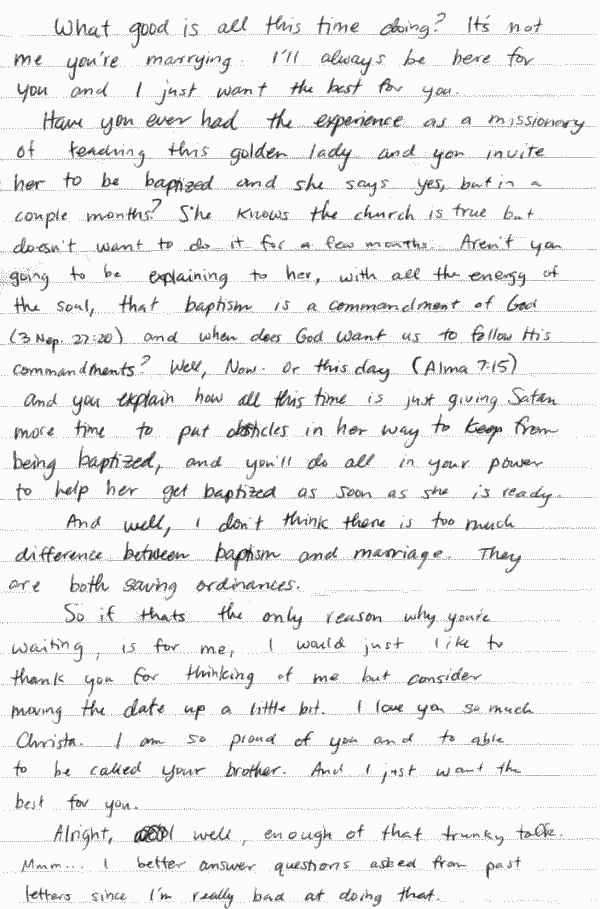 What good is all this time doing? It's not
me you're marrying. I'll always be here for
you and I just want the best for you.
Have you ever had the experience as a missionary
of teaching this golden lady and you invite
her to be baptized and she says yes, but in a
couple months? She knows the church is true but
doesn't want to do it for a few months. Aren't you
going to be explaining to her, with all the energy of
the soul, that baptism is a commandment of God
(3 Nep. 27:20) and when does God want us to follow His
commandments? Well, Now. Or this day (Alma 7:15)
and you explain how all this time is just giving Satan
more time to put obsticles in her way to keep from
being baptized, and you'll do all in your power
to help her get baptized as soon as she is ready.
And well, I don't think there is too much
difference between baptism and marriage. They
are both saving ordinances.
So if thats the only reason why you're
waiting, is for me, I would just like to
thank you for thinking of me but consider
moving the date up a little bit. I love you so much
Christa. I am so proud of you and to able
to be called your brother. And I just want the
best for you.
Alright, well, enough of that trunky talk.
Mmm... I better answer questions asked from past
letters since I'm really bad at doing that.